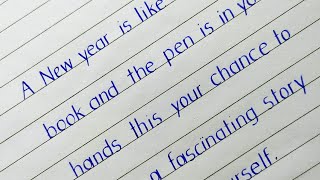 A New year is like
book and the pen is in yo
hands this your chance to
a fascinating story
urself.